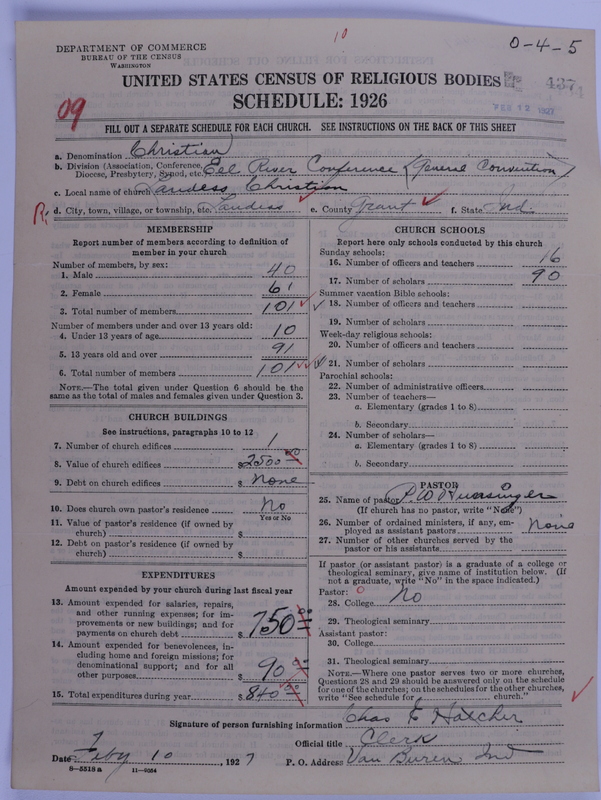 10
0-4-5
DEPARTMENT OF COMMERCE
BUREAU OF THE CENSUS
WASHINGTON
UNITED STATES CENSUS OF RELIGIOUS BODIES
SCHEDULE: 1926
09
FEB 12 1927
FILL OUT A SEPARATE SCHEDULE FOR EACH CHURCH. SEE INSTRUCTIONS ON THE BACK OF THIS SHEET
a. Denomination Christian
b. Division (Association, Conference, Diocese, Presbytery, Synod, etc. Eel River Conference (General Convention)
c. Local name of church Landess Christian
R; d. City, town, village, or township, etc. Landess e. County Grant f. State Ind.
MEMBERSHIP
Report number of members according to definition of
member in your church
Number of members, by sex:
1. Male 40
2. Female 61
3. Total number of members 101
Number of members under and over 13 years old:
4. Under 13 years of age 10
5. 13 years old and over 91
6. Total number of members 101
NOTE.—The total given under Question 6 should be the
same as the total of males and females given under Question 3.
CHURCH BUILDINGS
See instructions, paragraphs 10 to 12
7. Number of church edifices 1
8. Value of church edifices $ 2500 00
9. Debt on church edifices $ None
10. Does church own pastor's residence No
Yes or No
11. Value of pastor's residence (if owned by
church) $
12. Debt on pastor's residence (if owned by
church) $
EXPENDITURES
Amount expended by your church during last fiscal year
13. Amount expended for salaries, repairs,
and other running expenses; for im-
provements or new buildings; and for
payments on church debt $ 750 00
14. Amount expended for benevolences, in-
cluding home and foreign missions; for
denominational support; and for all
other purposes $ 90 00
15. Total expenditures during year $ 840 00
CHURCH SCHOOLS
Report here only schools conducted by this church
Sunday schools:
16. Number of officers and teachers 16
17. Number of scholars 90
Summer vacation Bible schools:
18. Number of officers and teachers
19. Number of scholars
Week-day religious schools:
20. Number of officers and teachers
21. Number of scholars
Parochial schools:
22. Number of administrative officers
23. Number of teachers—
a. Elementary (grades 1 to 8)
b. Secondary
24. Number of scholars—
a. Elementary (grades 1 to 8)
b. Secondary
PASTOR
25. Name of pastor P W Hunsinger
(If church has no pastor, write "None")
26. Number of ordained ministers, if any, em-
ployed as assistant pastors None
27. Number of other churches served by the
pastor or his assistants
If pastor (or assistant pastor) is a graduate of a college or
theological seminary, give name of institution below. (If
not a graduate, write "No" in the space indicated.)
Pastor: 0
28. College No
29. Theological seminary
Assistant pastor:
30. College
31. Theological seminary
NOTE.—Where one pastor serves two or more churches,
Questions 28 and 29 should be answered only on the schedule
for one of the churches; on the schedules for the other churches,
write "See schedule for church."
Signature of person furnishing information Chas E Hatcher
Official title Clerk
Date Feby 10, 1927 P. O. Address Van Buren Ind
8—5518a 11—9084